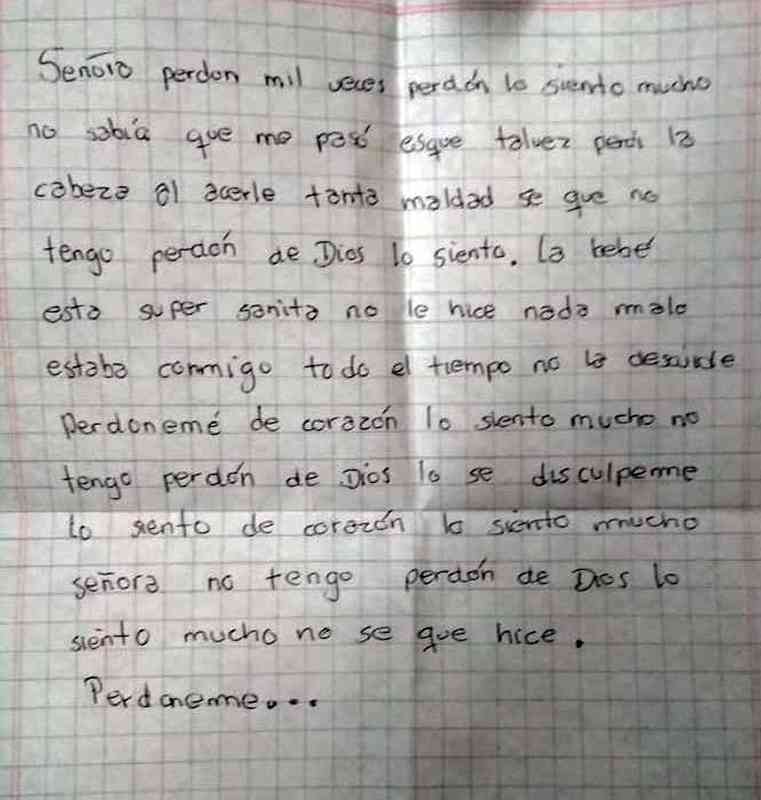 Señora perdon mil veces perdón lo siento mucho
no sabía que me pasó esque talvez perdi la
cabeza al acerle tanta maldad se que no
tengo perdón de Dios lo siento. la bebé
esta super sanita no le hice nada malo
estaba conmigo todo el tiempo no la descuide
Perdonemé de corazón lo siento mucho no
tengo perdón de Dios lo se disculpeme
lo siento de corazón lo siento mucho
señora no tengo perdón de Dios lo
siento mucho no se que hice.
Perdoneme...